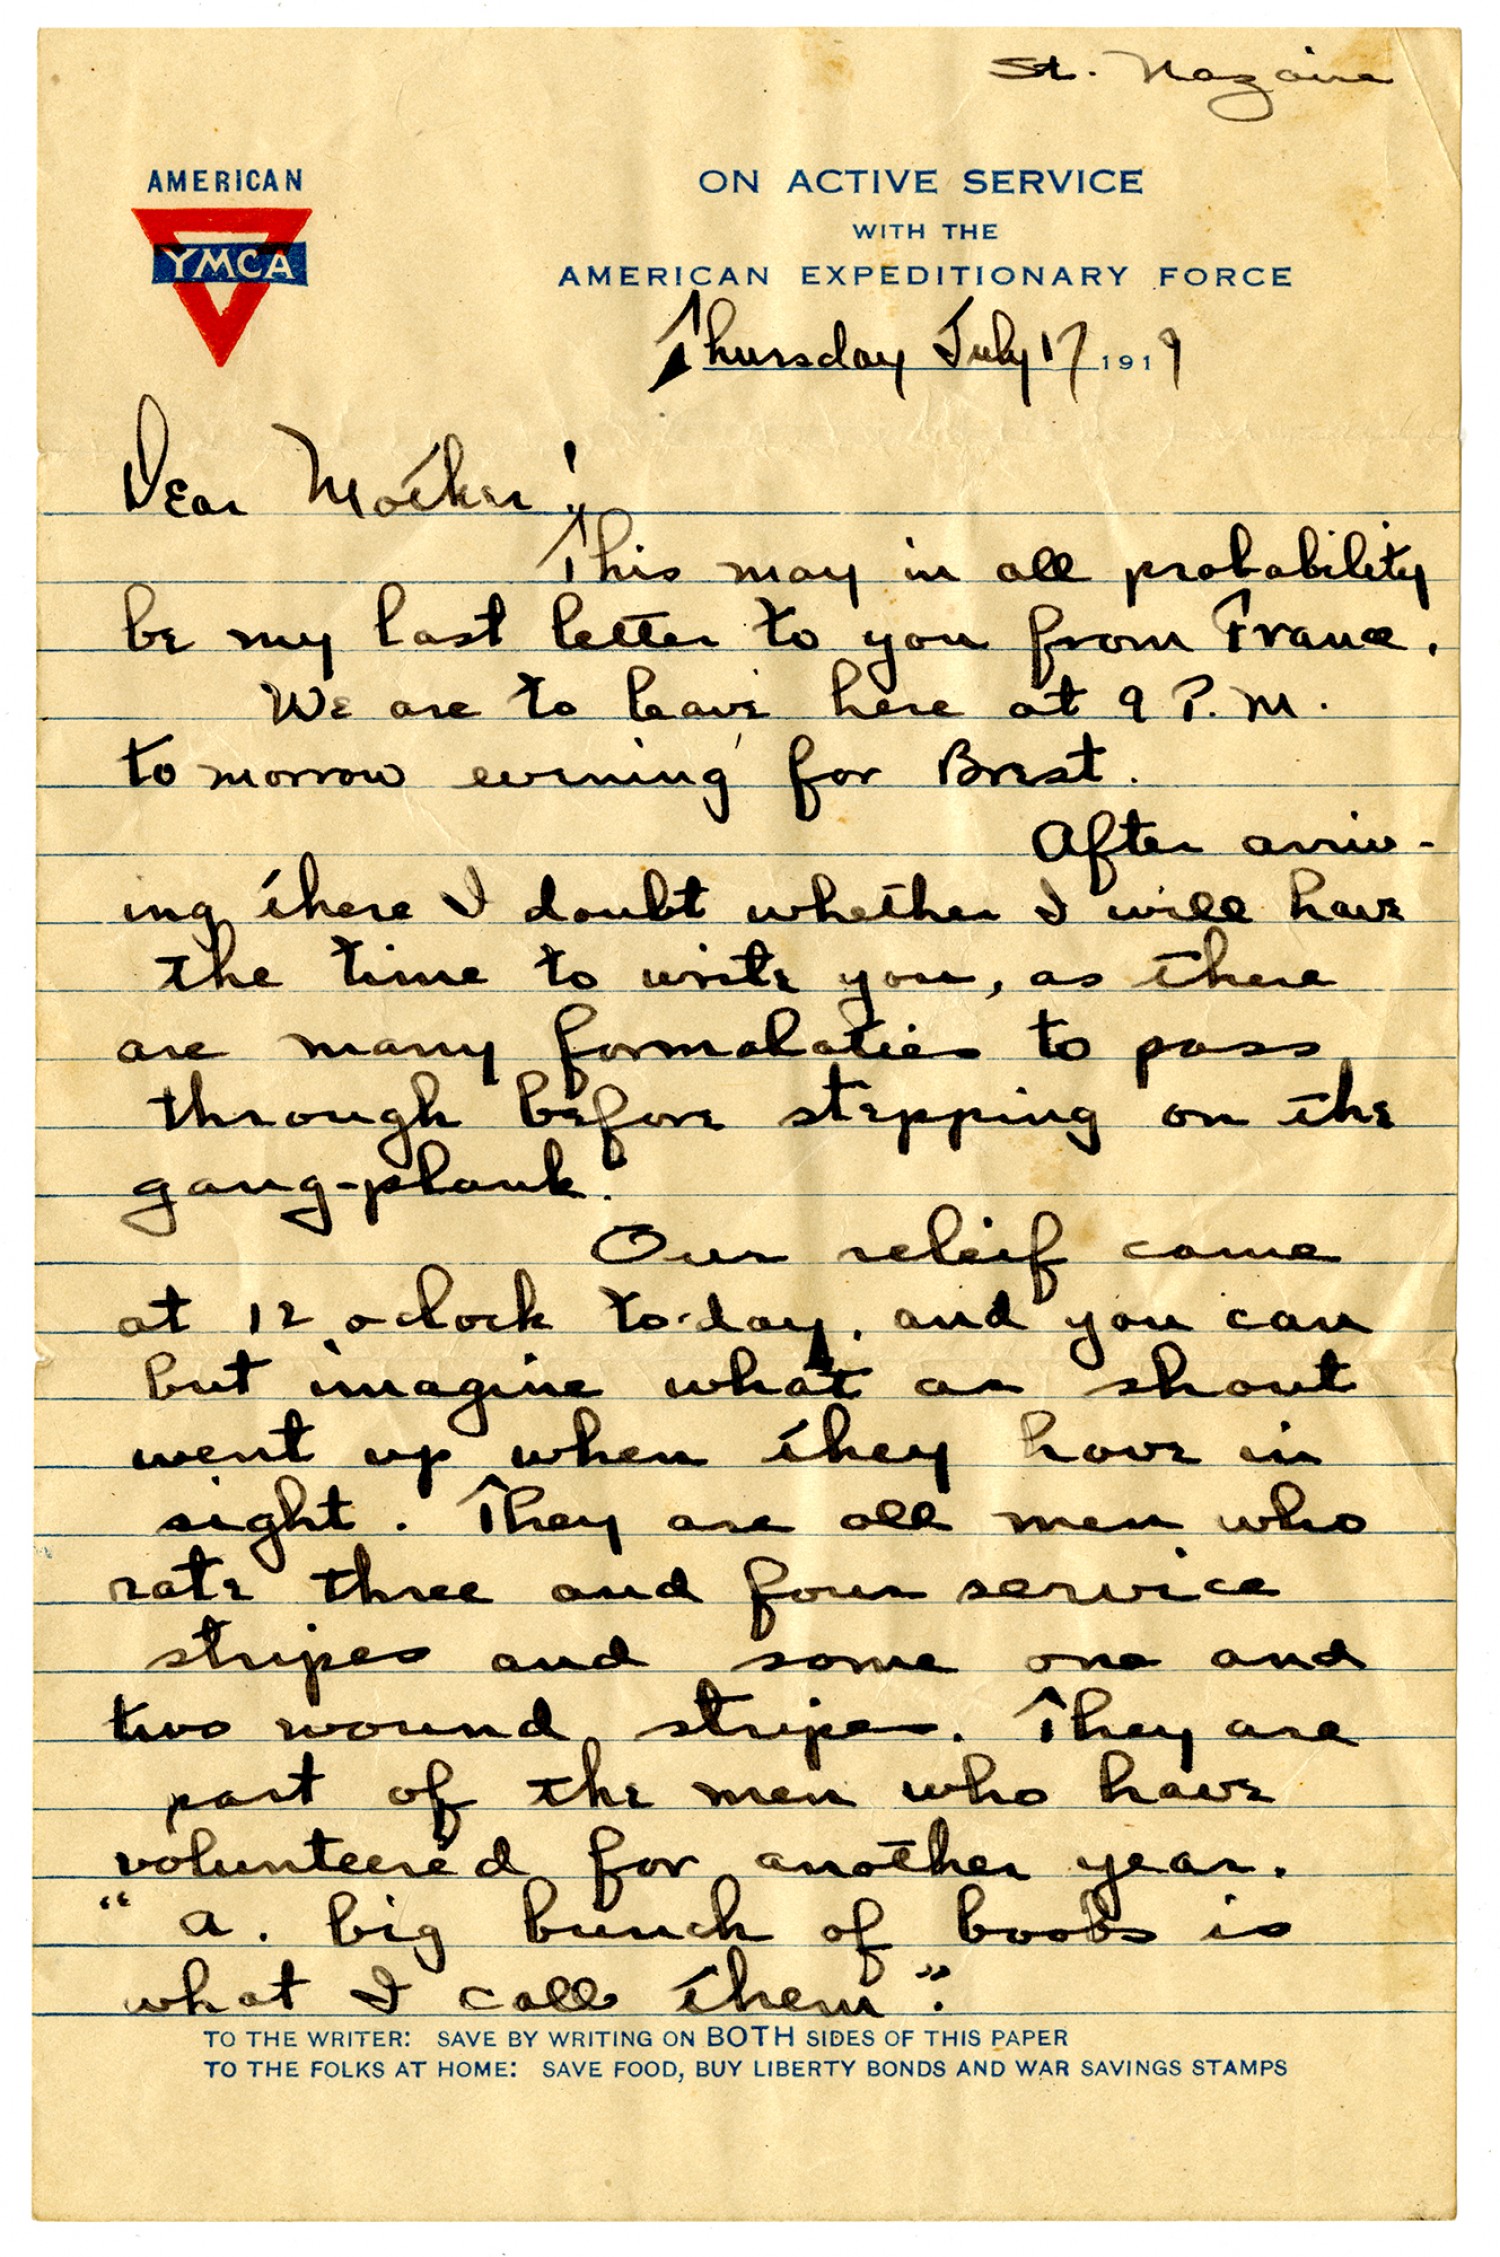 St. Nazaire
AMERICAN
YMCA
ON ACTIVE SERVICE
WITH THE
AMERICAN EXPEDITIONARY FORCE
Thursday July 17 1919
Dear Mother!
This may in all probability
be my last letter to you from France.
We are to leave here at 9 P.M.
tomorrow evening for Brest.
After arriv-
ing there I doubt whether I will have
the time to write you, as there
are many formalaties to pass
through before stepping on the
gang-plank.
Our releif came
at 12 o'clock to-day, and you can
but imagine what a shout
went up when they hove in
sight. They are all men who
rate three and four service
stripes and some one and
two wound stripes. They are
part of the men who have
volunteered for another year.
"A. big bunch of boobs is
what I call them".
TO THE WRITER: SAVE BY WRITING ON BOTH SIDES OF THIS PAPER
TO THE FOLKS AT HOME: SAVE FOOD, BUY LIBERTY BONDS AND WAR SAVINGS STAMPS